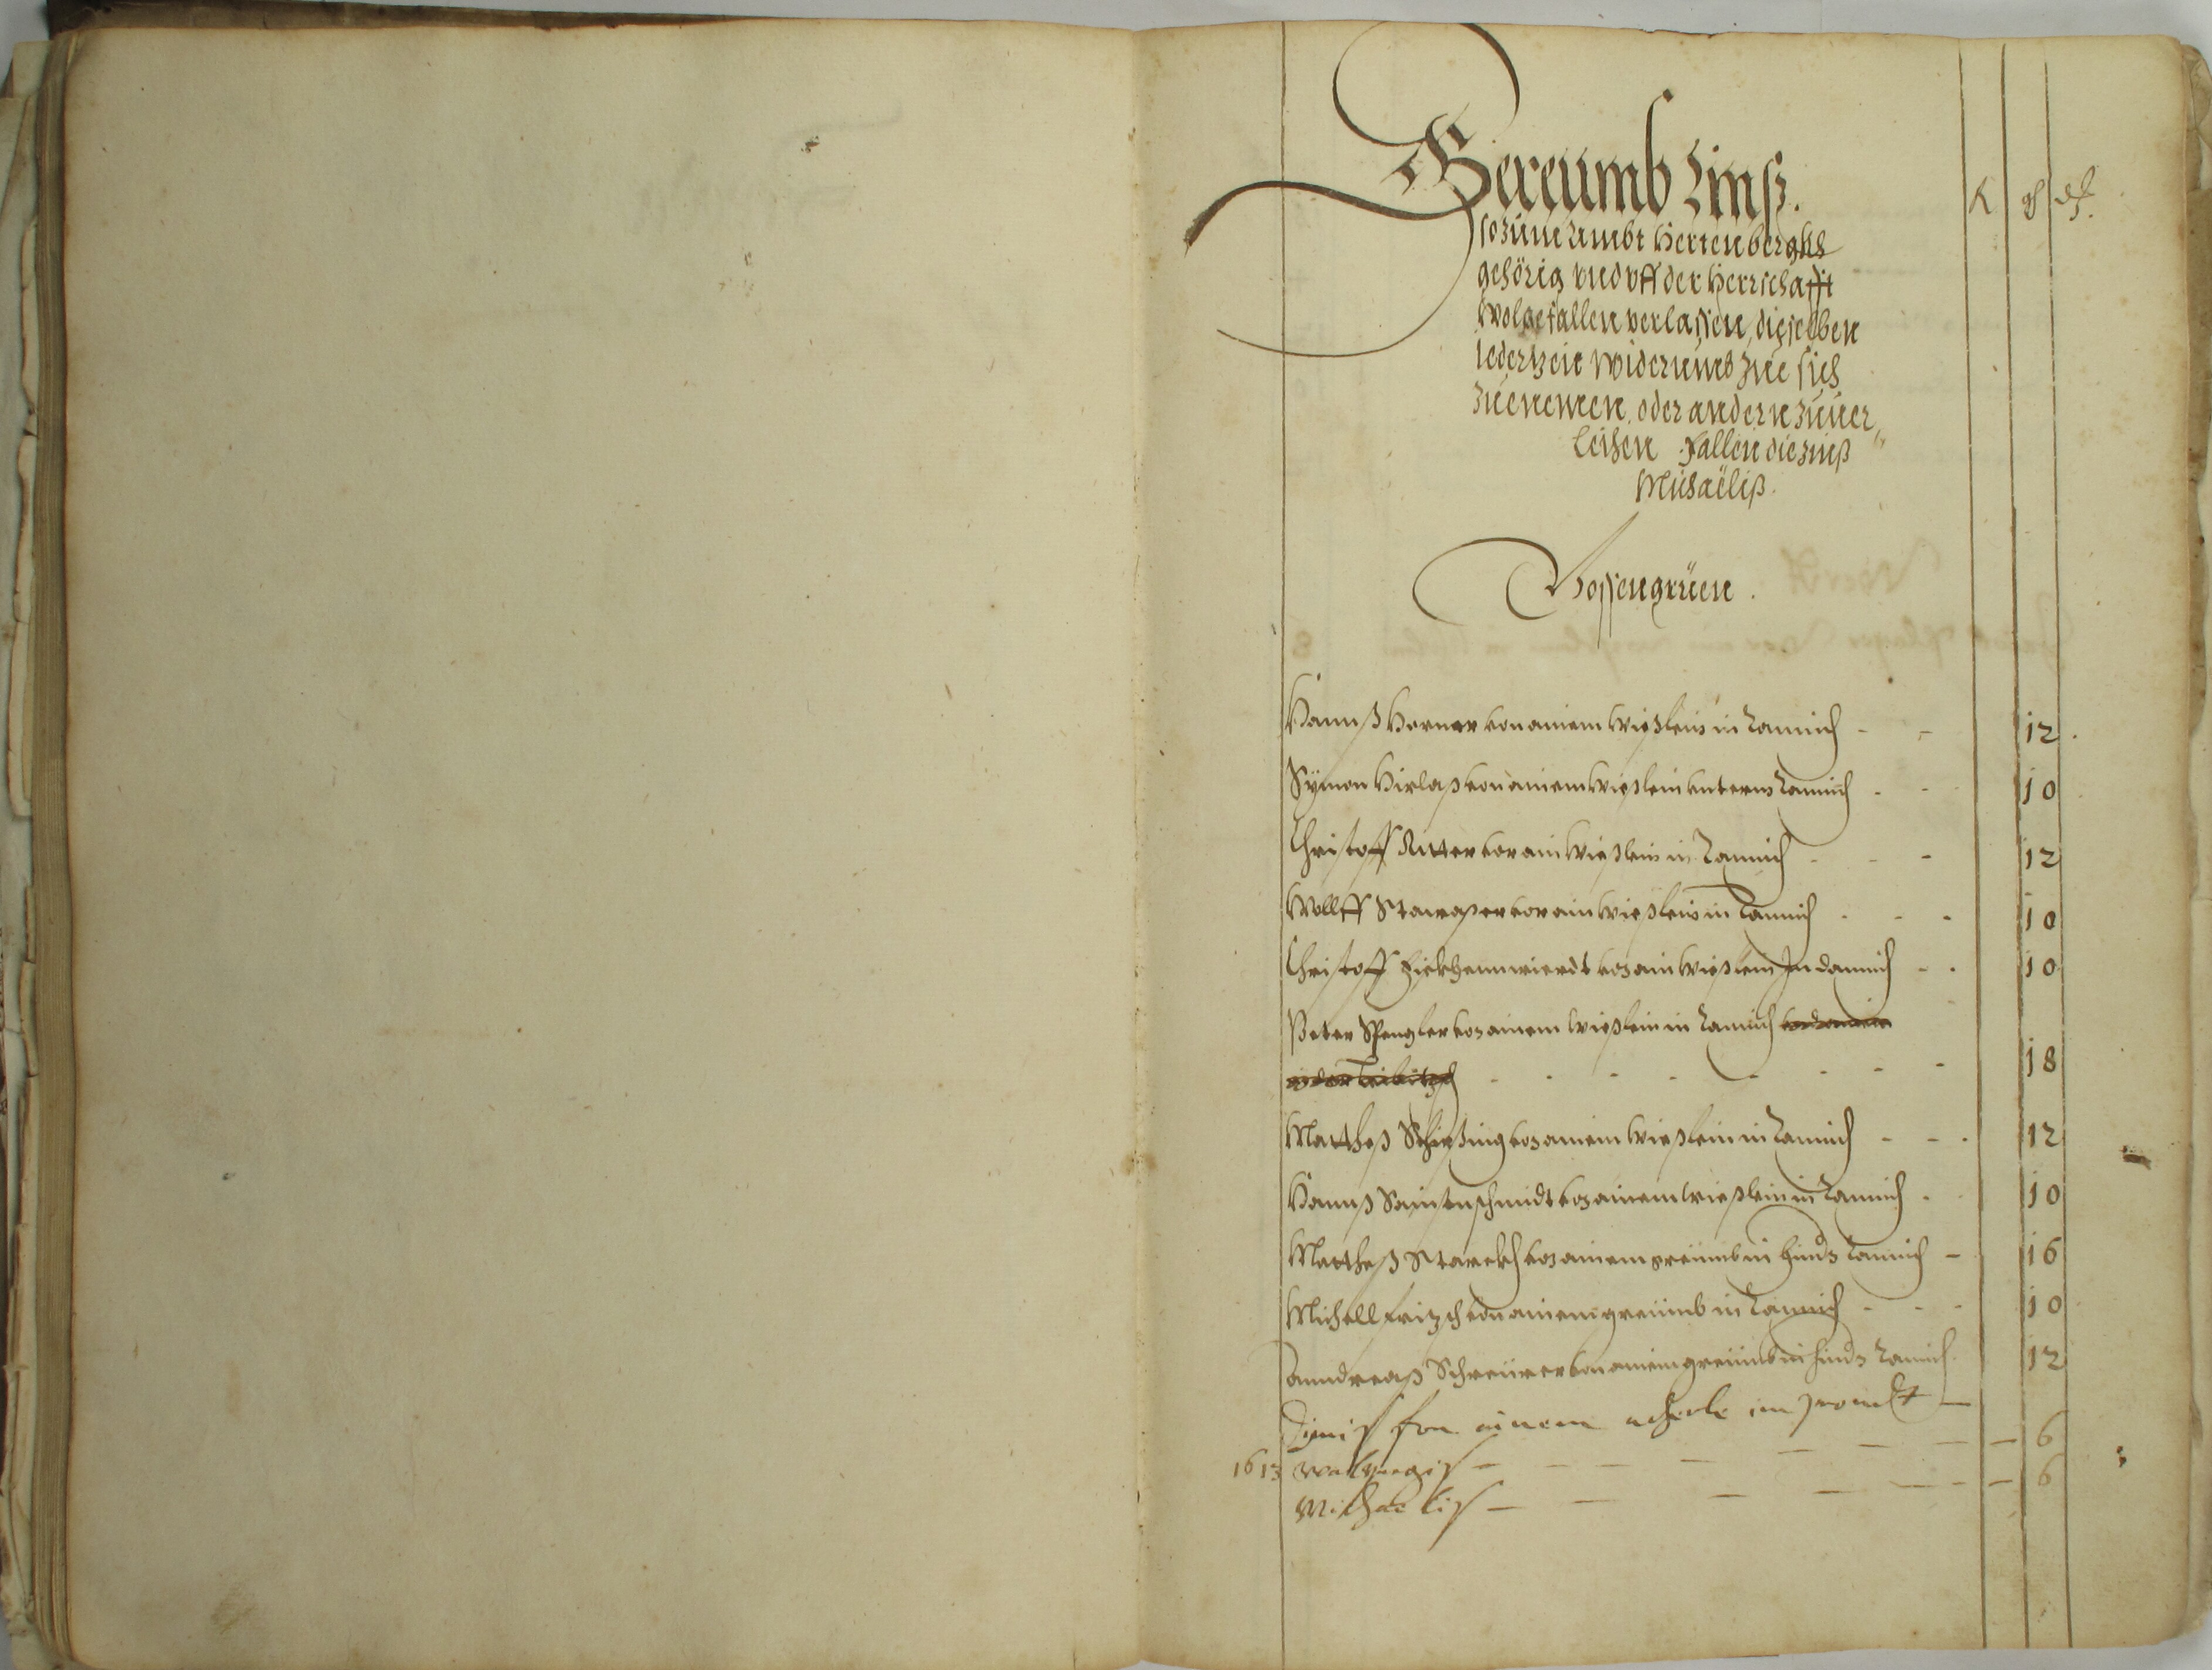 Gereumb Zinß.
so zum Ambt Hertenbergkh
gehörig vnd vff der Herrschafft
Wolgefallen verlassen, dieselben
iederzeit widerumb zue sich
zuenemen, oder andern zuuer,,
leihen Fallen die zinß
Michaëliß.
ß gl d.
Gossengrüen.
Hannß Horner von ainem Wießlein in Tannich - - 12
Symon Hirlaß von ainem Wießlein Tannich - - 10
Christoff Ritter von ain Wießlein in Tannich - - - 12
Wolff von ain Wießlein in Tannich - - - 10
Christoff von ain Wießlein In dannich - - 10
Peter Spengler von ainem Wießlein in Tannich
in der - - - - - - - 18
Mattheß von ainem Wießlein in Tannich - - - 12
Hannß von ainem Wießlein in Tannich - 10
Mattheß Starckh von ainem greümb in Tannich - 16
Michell Fritzsch von ainem greümb in Tannich - - - 10
Anndreaß Schreürer von ainem greümb in Tannich 12
fon einem ackerle im —
1613 walpurgis — — — — — — — 6
Michaelis — — — — — — 6